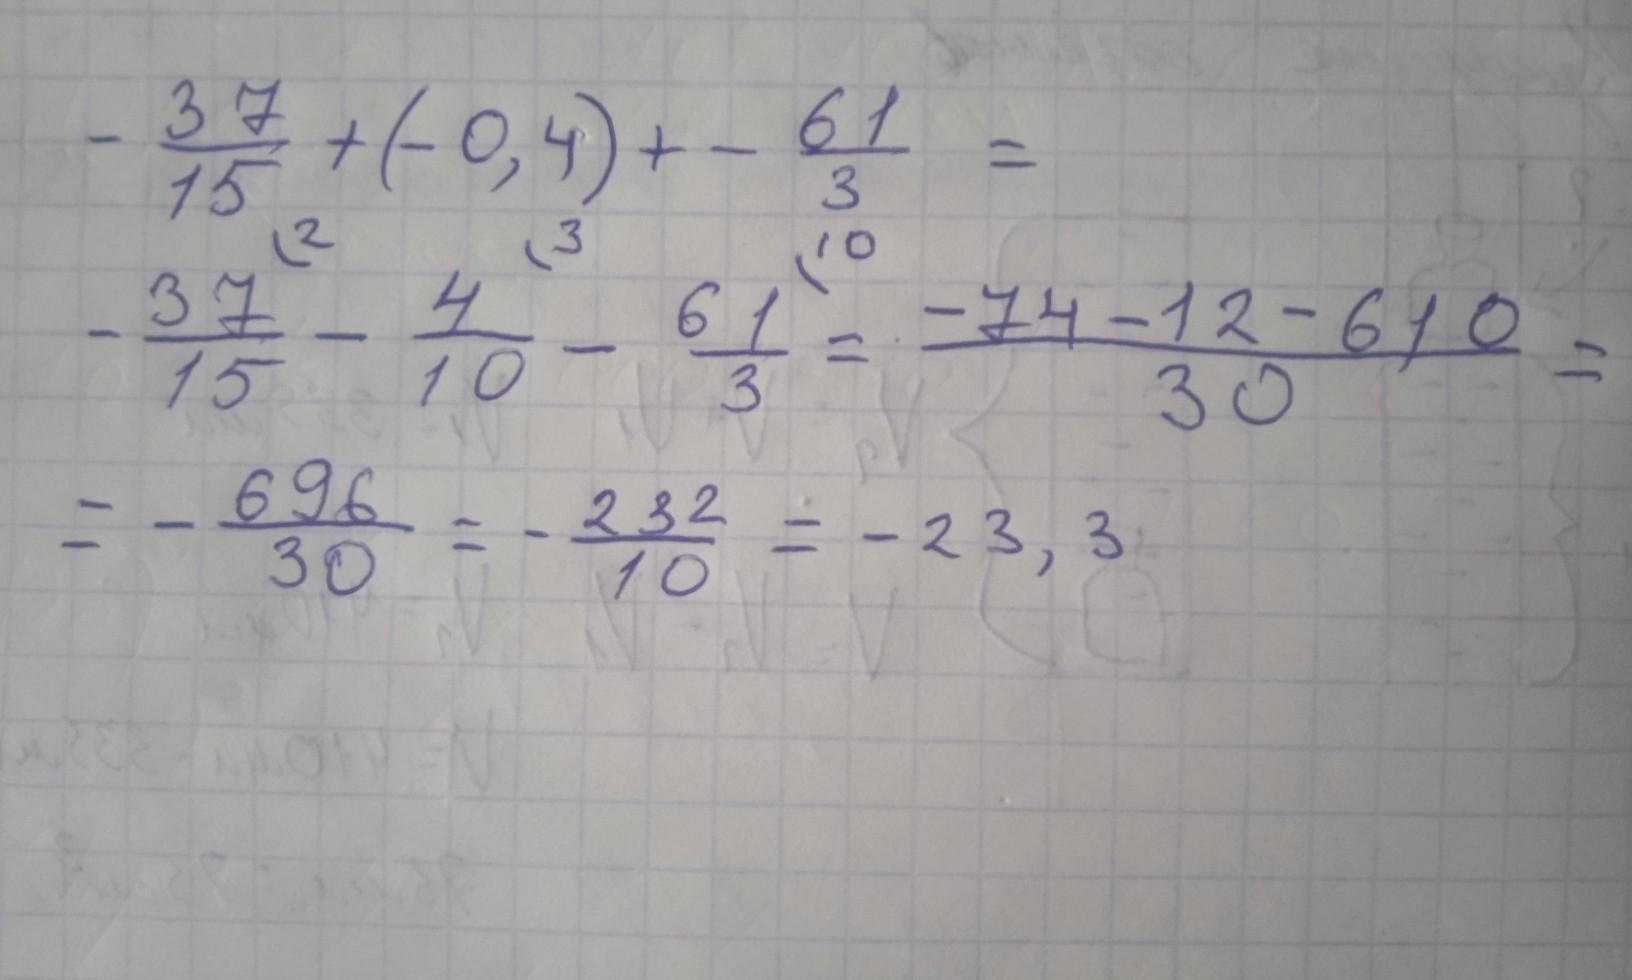 - 37/15 + (- 0,4) + - 61/3 =
- 37/15 \2 - 4/10 \3 - 61/3 \10 = -74-12-610/30 =
= - 696/30 = - 232/10 = - 23,3